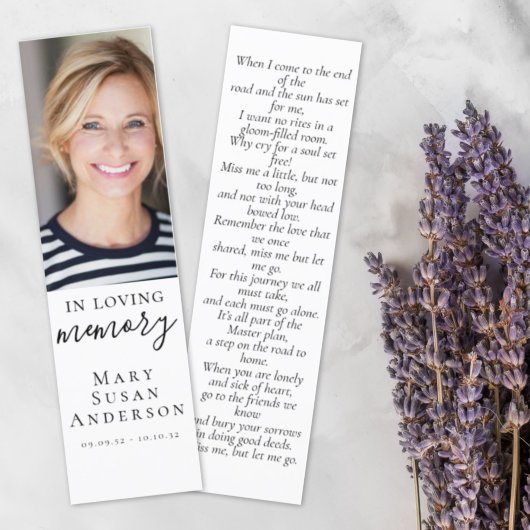 IN LOVING
memory
MARY
SUSAN
ANDERSON
09.09.52 - 10.10.32
When I come to the end
of the
road and the sun has set
for me,
I want no rites in a
gloom-filled room.
Why cry for a soul set
free!
Miss me a little, but not
too long,
and not with your head
bowed low.
Remember the love that
we once
shared, miss me but let
me go.
For this journey we all
must take,
and each must go alone.
It's all part of the
Master plan,
a step on the road to
home.
When you are lonely
and sick of heart,
go to the friends we
know
and bury your sorrows
in doing good deeds.
Miss me, but let me go.